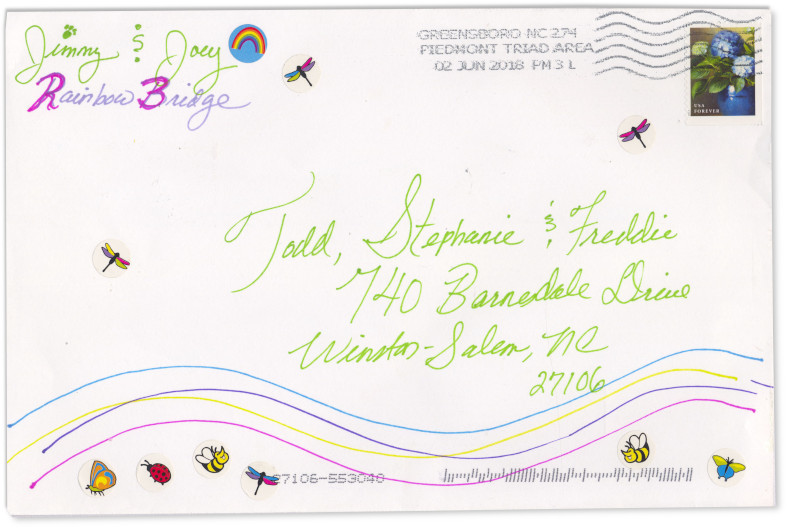 Jimmy & Joey
Rainbow Bridge
GREENSBORO NC 274
PIEDMONT TRIAD AREA
02 JUN 2018 PM 3 L
USA
FOREVER
Todd, Stephanie & Freddie
740 Barnesdale Drive
Winston-Salem, NC
27106
27106-553040